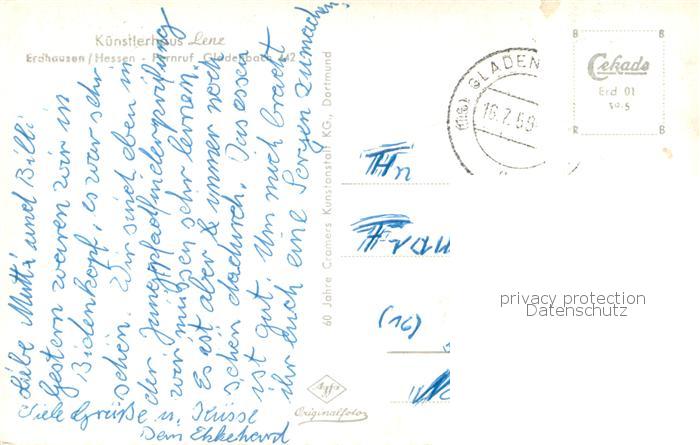 Künstlerhaus Lenz
Erdhausen/Hessen - Fernruf Gladenbach 242
Liebe Mutti und Billi
gestern waren wir in
Bidenkopf, es war sehr
schön. Wir sind eben in
der Jungpfadfinderprüfung
wir müssen sehr lernen.
Es ist aber immer noch
schön dadurch. Das essen
ist gut. Um mich braucht
ihr euch eine Sorgen zumachen
Viele Grüße u. Küsse
Dein Ekkehard
60 Jahre Cramers Kunstanstalt KG., Dortmund
Agfa
Originalfoto
(16) GLADEN
16.7.59
B B
Cekade
Erd 01
R B
Hn
Fran
(16)
privacy protection
Datenschutz